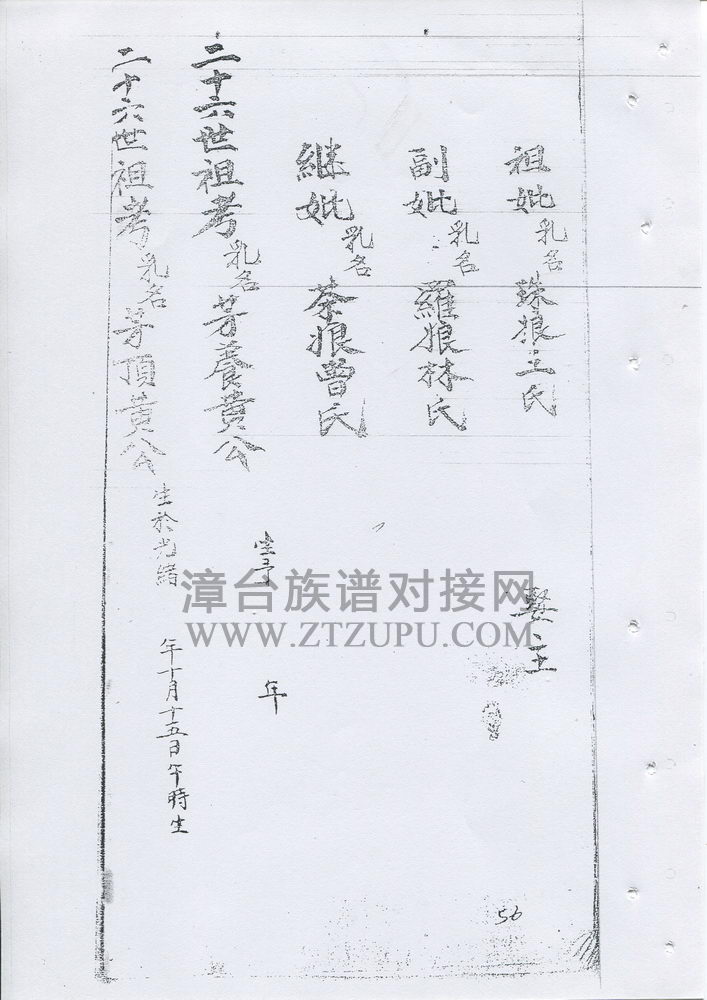 祖妣乳名珠娘王氏
副妣乳名羅娘林氏
継妣乳名茶娘曾氏
二十六世祖考乳名芽養黄公
生于 年
二十六世祖考乳名芽頂黄公
生於光緒 年十月十五日午時生
56
漳台族谱对接网
WWW.ZTZUPU.COM